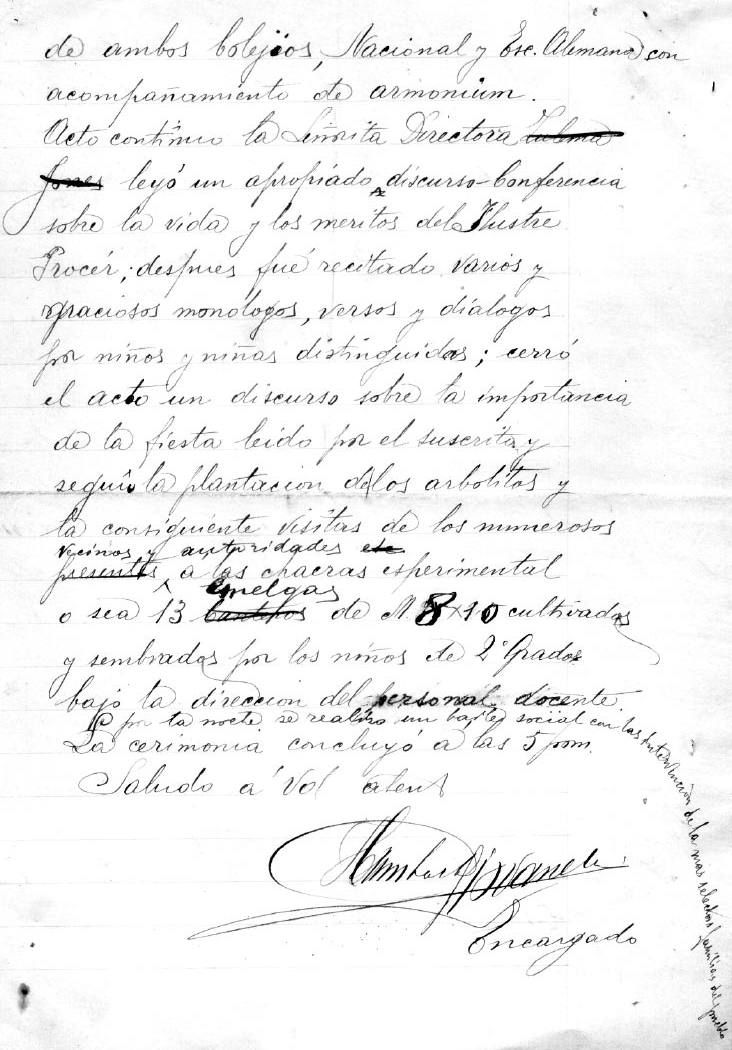 de ambos Colejios, Nacional y Esc. Alemana con
acompañamiento de armonium.
Acto continuo la Señorita Directora Zulema
Jones leyó un apropiado discurso-Conferencia
sobre la vida y los meritos del Ilustre
Procér; despues fué recitado varios y
graciosos monólogos, versos y diálogos
por niños y niñas distinguidas; cerró
el acto un discurso sobre la importancia
de la fiesta leido por el suscrito y
seguió la plantacion de los arbolitos y
la consiguiente visitas de los numerosos
vecinos y autoridades
presentes a las chacras esperimental
emelgas
o sea 13 de M. 8x10 cultivados
y sembrados por los niños de 2º Grados
bajo la direccion del personal docente.
por la noche se realizó un baile social con las intervención de la mas selectas familias del pueblo
La cerimonia concluyó á las 5 pom.
Saludo á Vd atent
Encargado